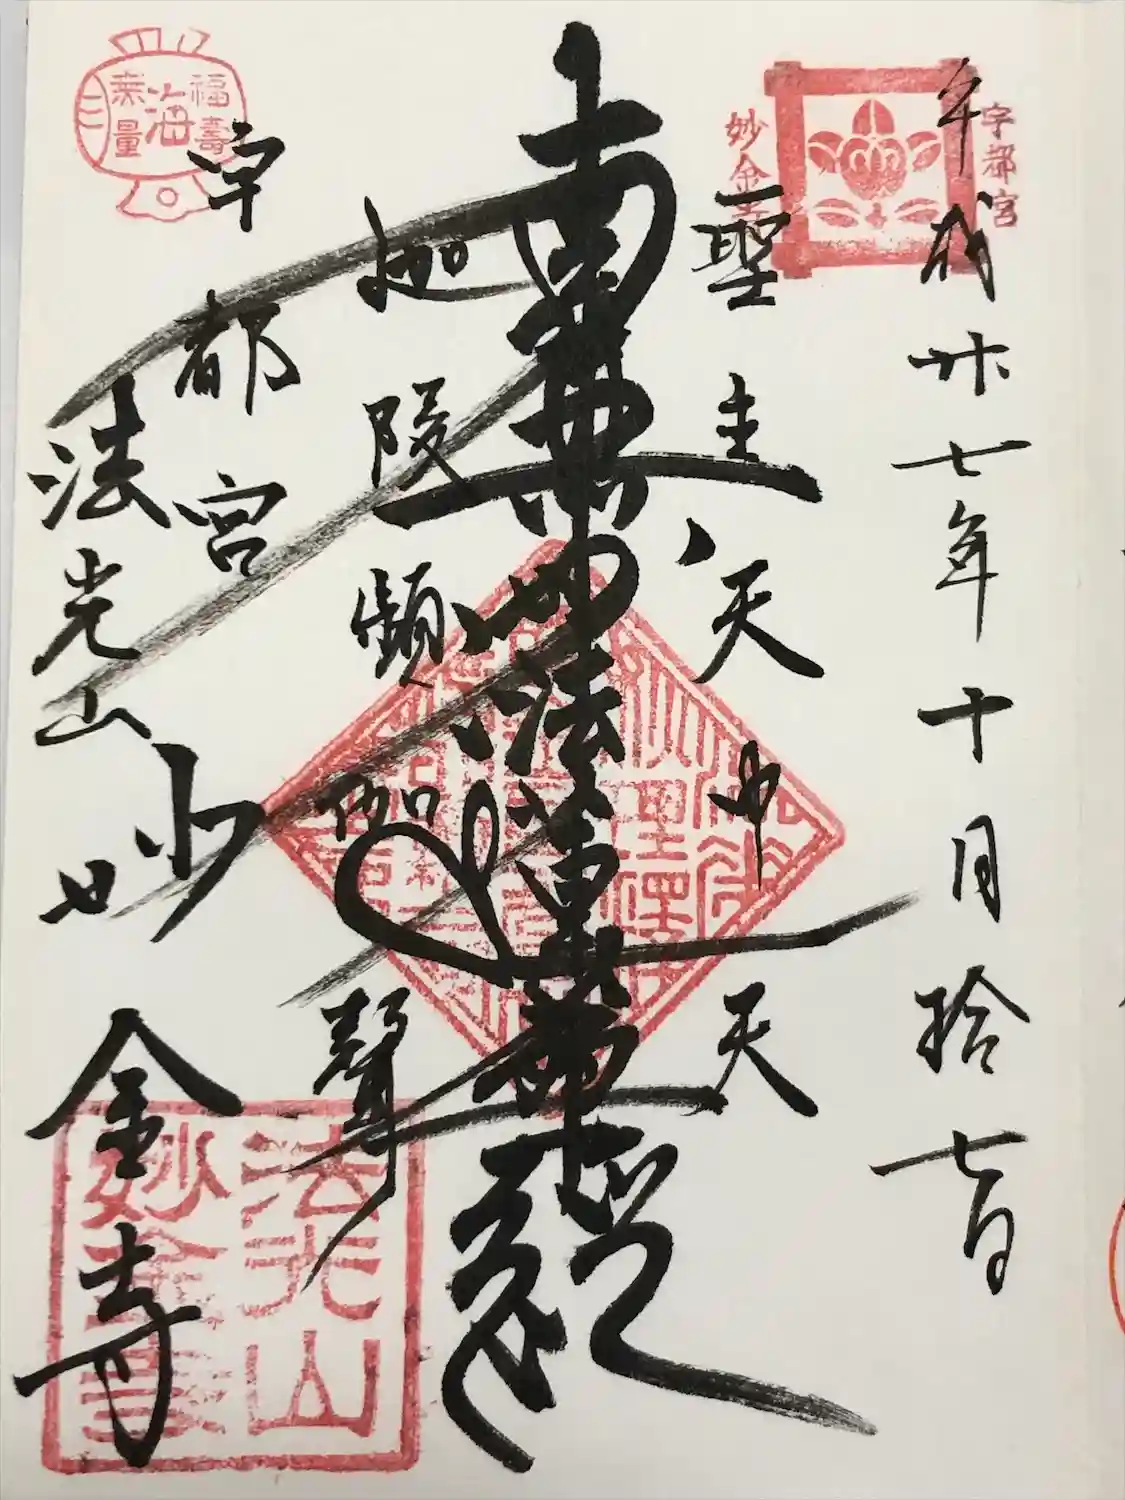 平成廿七年十月拾七日
宇都宮
妙金寺
聖主天中天
南無妙法蓮華經
迦陵頻伽聲
宇都宮
法光山
妙金寺
福壽
海
無量
法光山
妙金寺